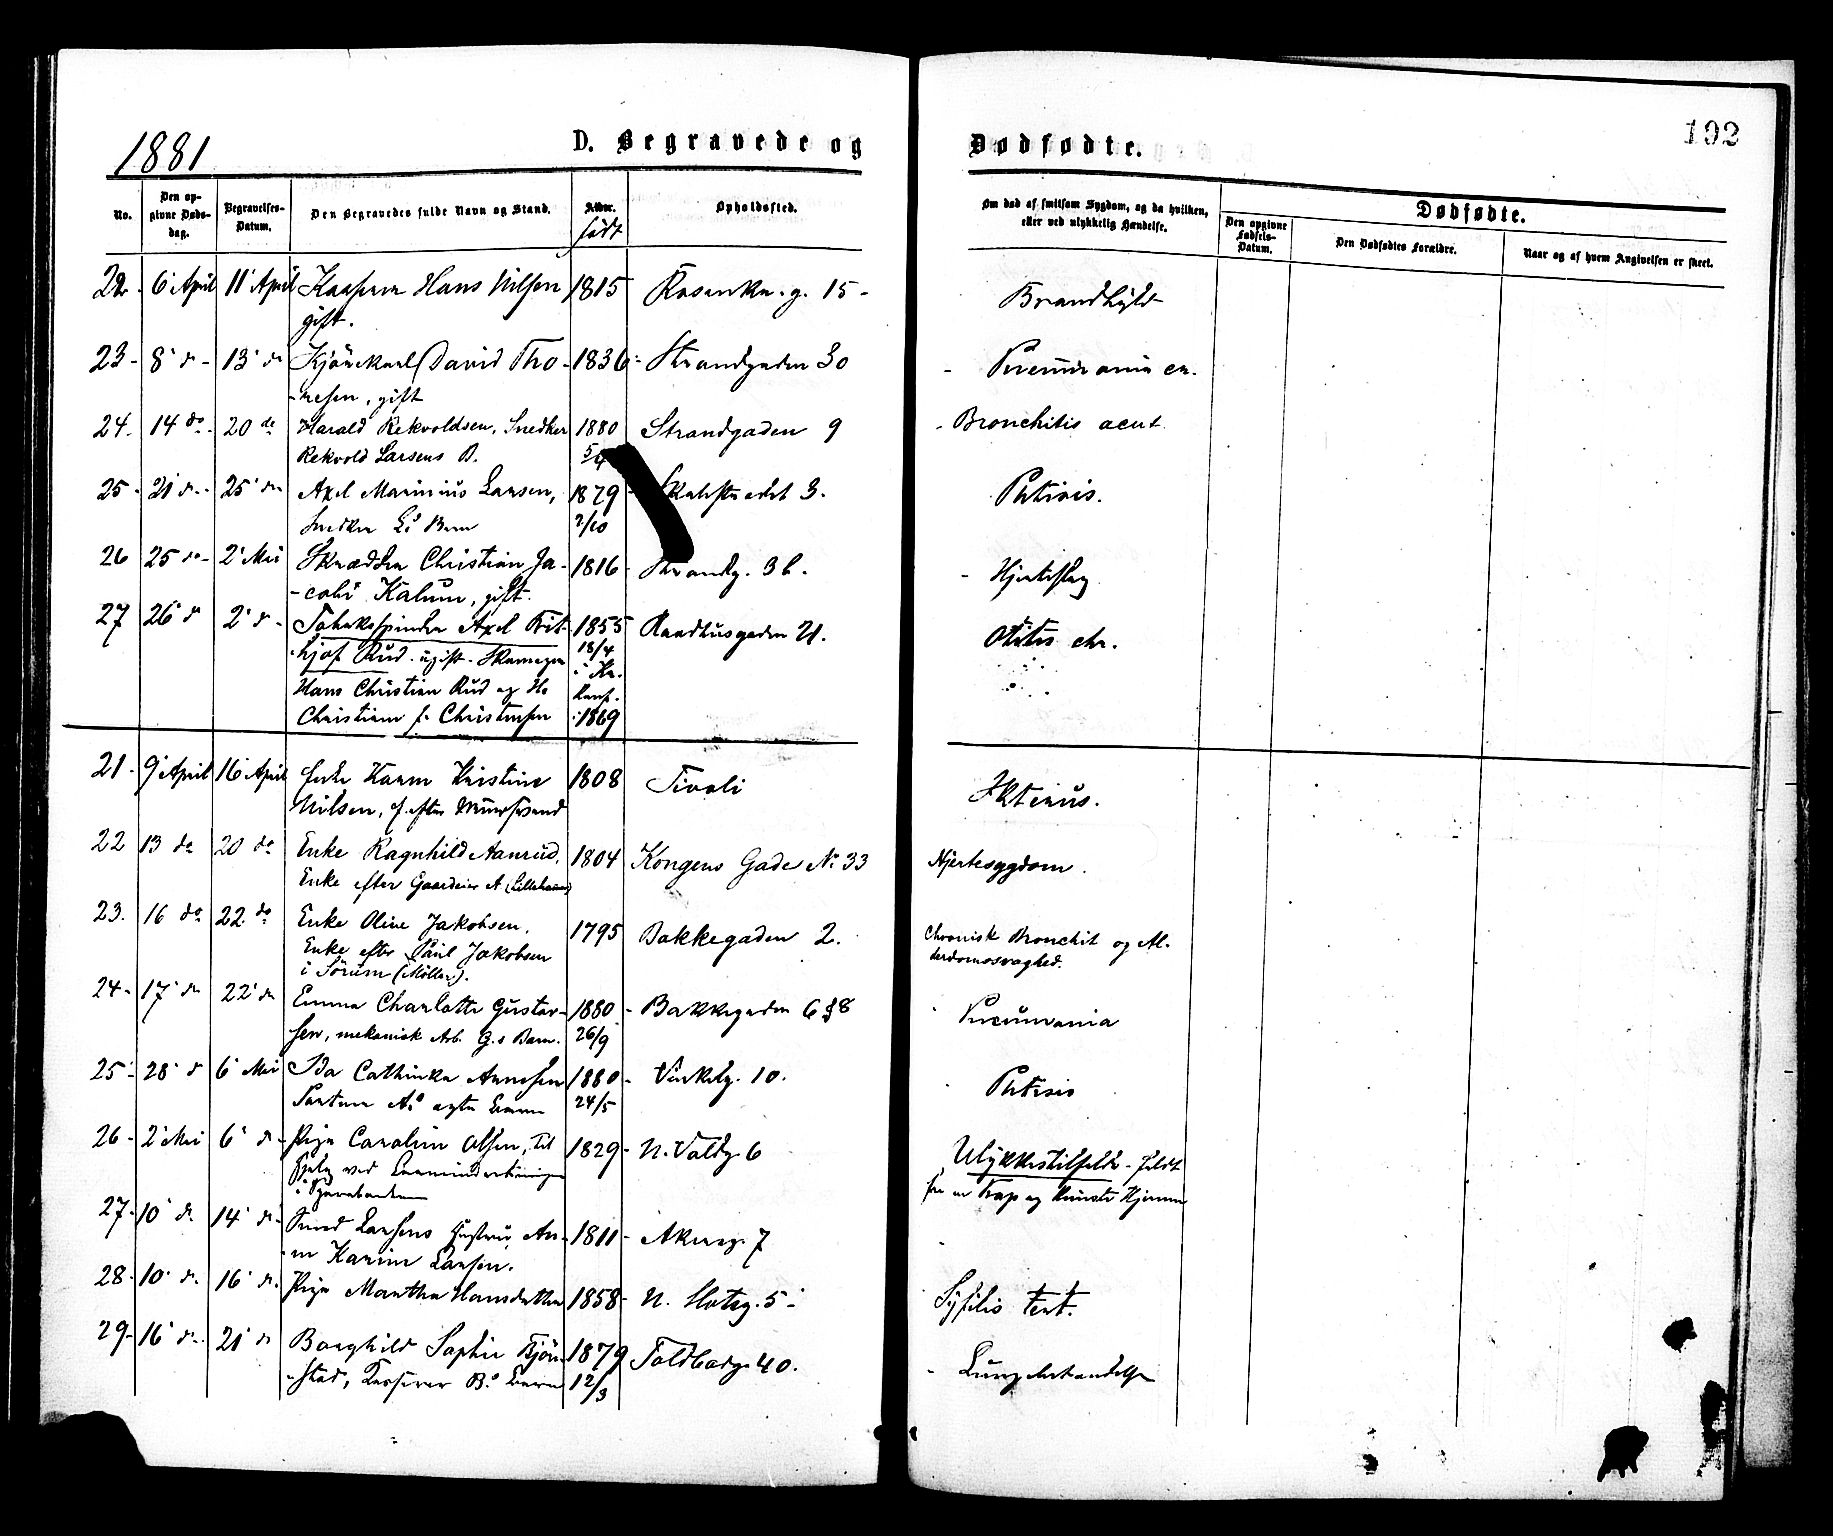 1881
D. Begravede og
Dødfødte.
192
No.
Den op-
givne Døds-
dag.
Begravelses-
Datum.
Den Begravedes fulde Navn og Stand.
Alder.
født
Opholdssted.
Om død af smitsom Sygdom, og da hvilken,
eller ved ulykkelig Hændelse.
Dødfødte.
Den opgivne
Fødsels-
Datum.
Den Dødfødtes Forældre.
Naar og af hvem Angivelsen er skeet.
22. 6 April 11 April Hans Nilsen 1815 Rosenkr. g. 15
gift.
23 - 8 d - 13 d David Tho- 1836 - Strandgaden 30 - Pneumonia cr.
-nesen, gift
24. 14 do. 20 de Harald Rekvoldsen, Snedker 1880 Strandgaden 9 - Bronchitis acut
Rekvold Larsens B. 5/4
25 - 21 d. 25 d Axel Marinius Larsen, 1879 3. Phtisis.
Snedker L.s Barn 2/10
26 25 do - 2 Mai Skrædder Christian Ja- 1816 - Strandg. 3 b. - Hjerteslag
-cobi Kalum, gift.
27 26 d 2 d - Tobakspinder Axel Frit- 1855 Raadhusgaden 21. Otitis chr.
-hjof Rud. ugift. 18/4
Hans Christian Rud og H. i Kr.
Christiane f. Christensen Konf. 1869
21 - 9 April 16 April Enke Karen Kristine 1808 Tivoli Ikterus.
Nilsen, f. efter
22 13 do 20 do Enke Ragnhild Aanrud, 1804 Kongens Gade No 33 Hjertesygdom.
Enke efter Gaardeier A (Lillehammer)
23. 16 do 22 do Enke Oline Jakobsen, 1795 Bakkegaden 2. Chronisk Bronchit og Al-
Enke efter Paul Jakobsen derdomssvaghed.
i Sörum (Möller).
24 - 17 d 22 d Emma Charlotte Gustav- 1880 - Bakkegaden 6 & 8 Pneumonia
sen, mekanisk Arb. G.s Barn. 26/9
25 - 28 d 6 Mai Ida Cathinka Arnesen 1880 - Vinkelg. 10. Phtisis
A.s ægte Barn 24/5
26 - 2 Mai 6 d - Pige Caroline Olsen, til 1829 - N. Voldg. 6 Ulykkestilfælde - faldt
Hjelp ved
i Sparebanken
27 - 10 d. 14 d - Larsens Hustru, An- 1811 - Akersg. 7
-ne Karine Larsen.
28. 10 d. 16 d. Pige Marthea Hansdatter 1858 - N. Slotsg. 5 - Syfilis tert.
29 - 16 d. 21 d Borghild Sophie Bjön- 1879 Toldbodg. 40. - Lungebetændelse
-stad, Kasserer B.s Barn 12/3